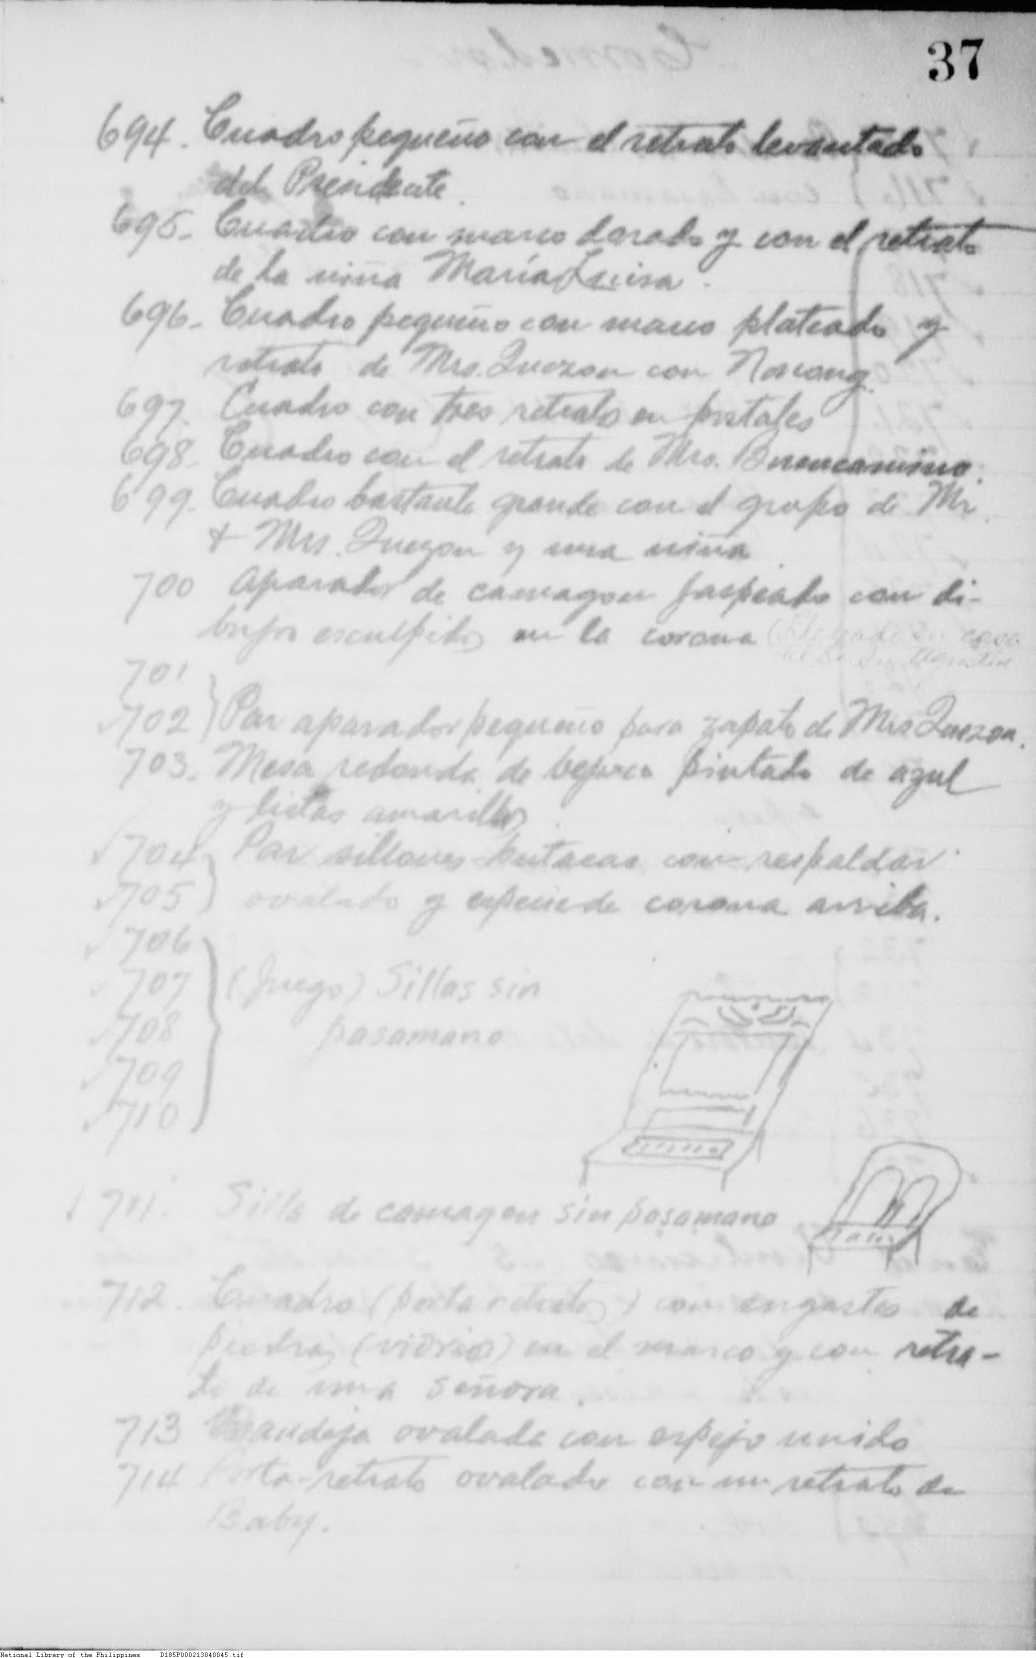 37
694. Cuadro pequeño con el retrato levantado
del Presidente.
695. Cuadro con marco dorado y con el retrato
de la niña María Luisa.
696. Cuadro pequeño con marco plateado y
retrato de Mrs. Quezon con Nonong.
697. Cuadro con tres retratos en postales
698. Cuadro con el retrato de Mrs. Buencamino.
699. Cuadro bastante grande con el grupo de Mr.
& Mrs. Quezon y una niña
700 Aparador de camagon jaspeado con di-
bujos esculpidos en la corona
701
702 } Par aparador pequeño para zapato de Mrs Quezon.
703. Mesa redonda de bejuco pintado de azul
y listas amarillas
704 Par sillones butacas con respaldar
705 } ovalado y especie de corona arriba.
706
707 (Juego) Sillas sin
708 pasamano
709
710
711. Silla de camagon sin pasamano
712. Cuadro (porta retrato) con engastes de
piedras (vidrios) en el marco y con retra-
to de una señora.
713 Bandeja ovalada con espejo unido
714 Porta-retrato ovalado con un retrato de
Baby.
National Library of the Philippines D185P000213040045.tif